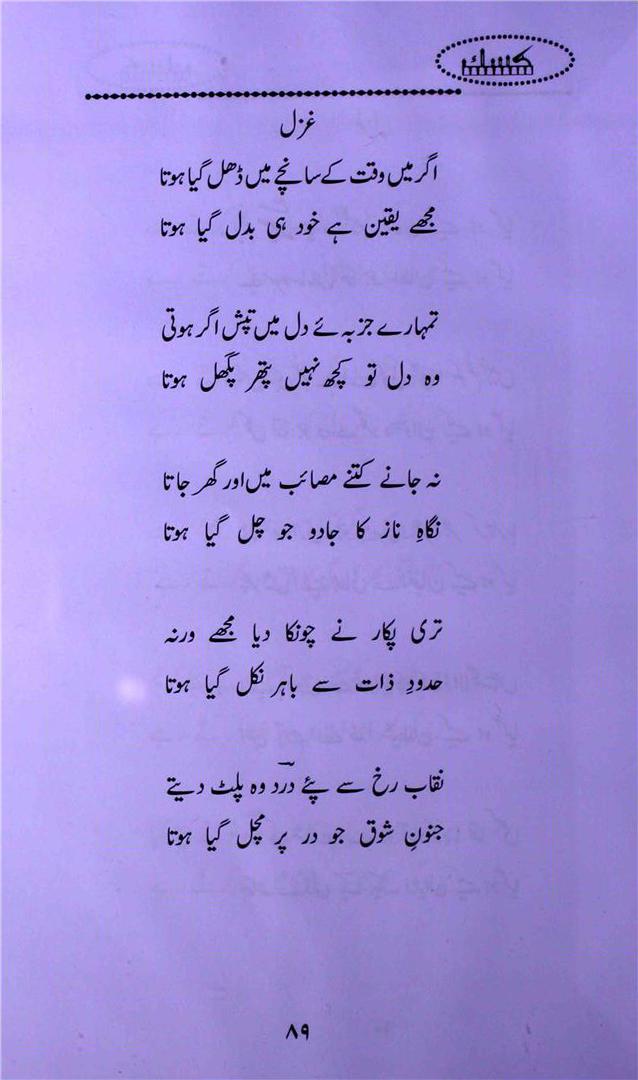 کسک
غزل
اگر میں وقت کے سانچے میں ڈھل گیا ہوتا
مجھے یقین ہے خود ہی بدل گیا ہوتا
تمہارے جزبہ ئے دل میں تپش اگر ہوتی
وہ دل تو کچھ نہیں پتھر پگھل ہوتا
نہ جانے کتنے مصائب میں اور گھر جاتا
نگاہِ ناز کا جادو جو چل گیا ہوتا
تری پکار نے چونکا دیا مجھے ورنہ
حدودِ ذات سے باہر نکل گیا ہوتا
نقاب رخ سے پئے درد وہ پلٹ دیتے
جنونِ شوق جو در پر مچل گیا ہوتا
۸۹